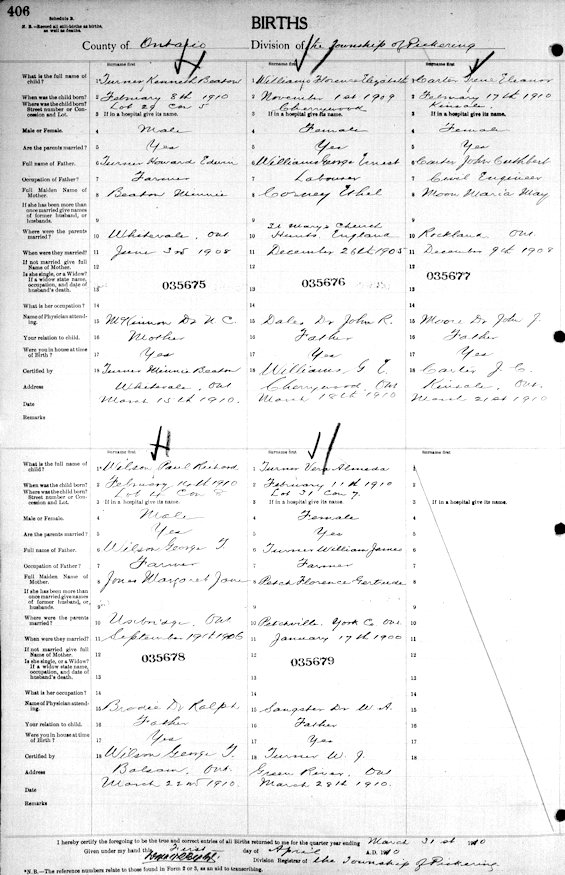 406
Schedule B.
N. B.—Record all still-births as births, as well as deaths.
BIRTHS
County of Ontario Division of the Township of Pickering
Surname first Surname first Surname first
What is the full name of child? 1 Turner Kenneth Beaton Williams Florence Elizabeth Carter Irene Eleanor
When was the child born? 2 February 8th 1910 November 1st 1909 February 17th 1910
Where was the child born? Street number or Concession and Lot. Lot 29 Con 5 Cherrywood Kinsale
3 If in a hospital give its name. 3 If in a hospital give its name. 3 If in a hospital give its name.
Male or Female. 4 Male 4 Female 4 Female
Are the parents married? 5 Yes 5 Yes 5 Yes
Full name of Father. 6 Turner Howard Edwin 6 Williams George Ernest 6 Carter John Cuthbert
Occupation of Father? 7 Farmer 7 Labourer 7 Civil Engineer
Full Maiden Name of Mother. 8 Beaton Minnie 8 Ethel 8 Moon Maria May
If she has been more than once married give names of former husband, or husbands. 9 9 9
Where were the parents married? 10 Whitevale, Ont 10 St Marys Church Hunts, England 10 Rockland Ont
When were they married? 11 June 3rd 1908 11 December 26th 1905 11 December 9th 1908
If not married give full Name of Mother. 12 12 12
Is she single, or a Widow? If a widow state name, occupation, and date of husband's death. 13
035675 035676 035677
What is her occupation?
Name of Physician attending. 15 McKinnon Dr N. C. 15 Dales Dr John R. 15 Moore Dr John J.
Your relation to child. 16 Mother 16 Father 16 Father
Were you in house at time of Birth? 17 Yes 17 Yes 17 Yes
Certified by 18 Turner Minnie Beaton 18 Williams G E 18 Carter J. C.
Address Whitevale, Ont Cherrywood, Ont Kinsale, Ont.
Date March 15th 1910. March 18th 1910 March 21st 1910
Remarks
Surname first Surname first Surname first
What is the full name of child? 1 Wilson Paul Richard 1 Turner Vera Almeda 1
When was the child born? 2 February 1910 2 February 11th 1910 2
Where was the child born? Street number or Concession and Lot. Lot 4 Con 8 Lot 31 Con 7.
3 If in hospital give its name. 3 If in a hospital give its name. 3 If in a hospital give its name.
Male or Female. 4 Male 4 Female 4
Are the parents married? 5 Yes 5 Yes 5
Full name of Father. 6 Wilson George T. 6 Turner William James 6
Occupation of Father? 7 Farmer 7 Farmer 7
Full Maiden Name of Mother. 8 Jones Margaret Jane 8 Petch Florence Gertrude 8
If she has been more than once married give names of former husband, or husbands. 9 9 9
Where were the parents married? 10 Uxbridge, Ont 10 Petchville, York Co Ont 10
When were they married? 11 September 19th 1906 11 January 17th 1900 11
If not married give full Name of Mother. 12 12 12
Is she single, or a Widow? If a widow state name, occupation, and date of husband's death.
035678 035679
What is her occupation?
Name of Physician attending. 15 Brodie Dr Ralph 15 Sangster Dr W. A. 15
Your relation to child. 16 Father 16 Father 16
Were you in house at time of Birth? 17 Yes 17 Yes 17
Certified by 18 Wilson George T. 18 Turner W. J. 18
Address Balsam, Ont. Green River, Ont
Date March 22nd 1910. March 29th 1910.
Remarks
I hereby certify the foregoing to be the true and correct entries of all Births returned to me for the quarter ending March 31st 1910
Given under my hand this First day of April A.D. 1910
Division Registrar of the Township of Pickering
*N. B.—The reference numbers relate to those found in Form 2 or 3, as an aid to transcribing.